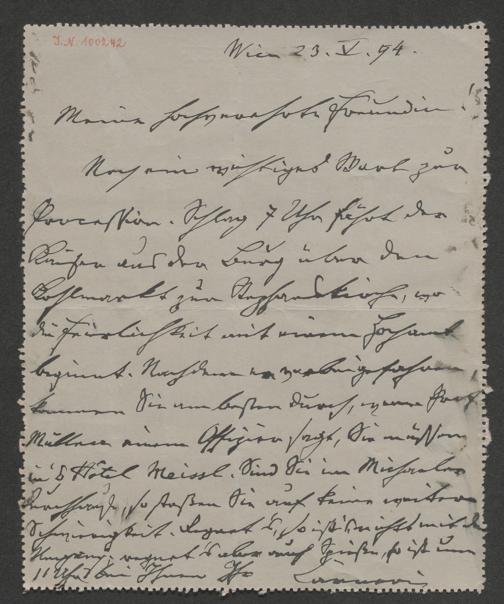 I.N. 100242
Wien 23. V. 94.
Meine hochverehrte Freundin!
Noch ein wichtiges Wort zur
Procession. Schlag 7 Uhr fährt der
Kaiser aus der Burg über den
Kohlmarkt zur Stephanskirche, wo
die Feierlichkeit mit einem Hochamt
beginnt. Nachdem er vorbeigefahren,
kommen Sie am besten durch, wenn
Müllern einem Offizier sagt, Sie müssen
in's Hôtel Meissl. Sind Sie im Michaeler
so stoßen Sie auf keine weitere
Schwierigkeit. Regnet's, so ist's nichts mit dem
Umgang, regnet's aber auch Spieße, so ist um
11 Uhr bei Ihnen Ihr Carneri